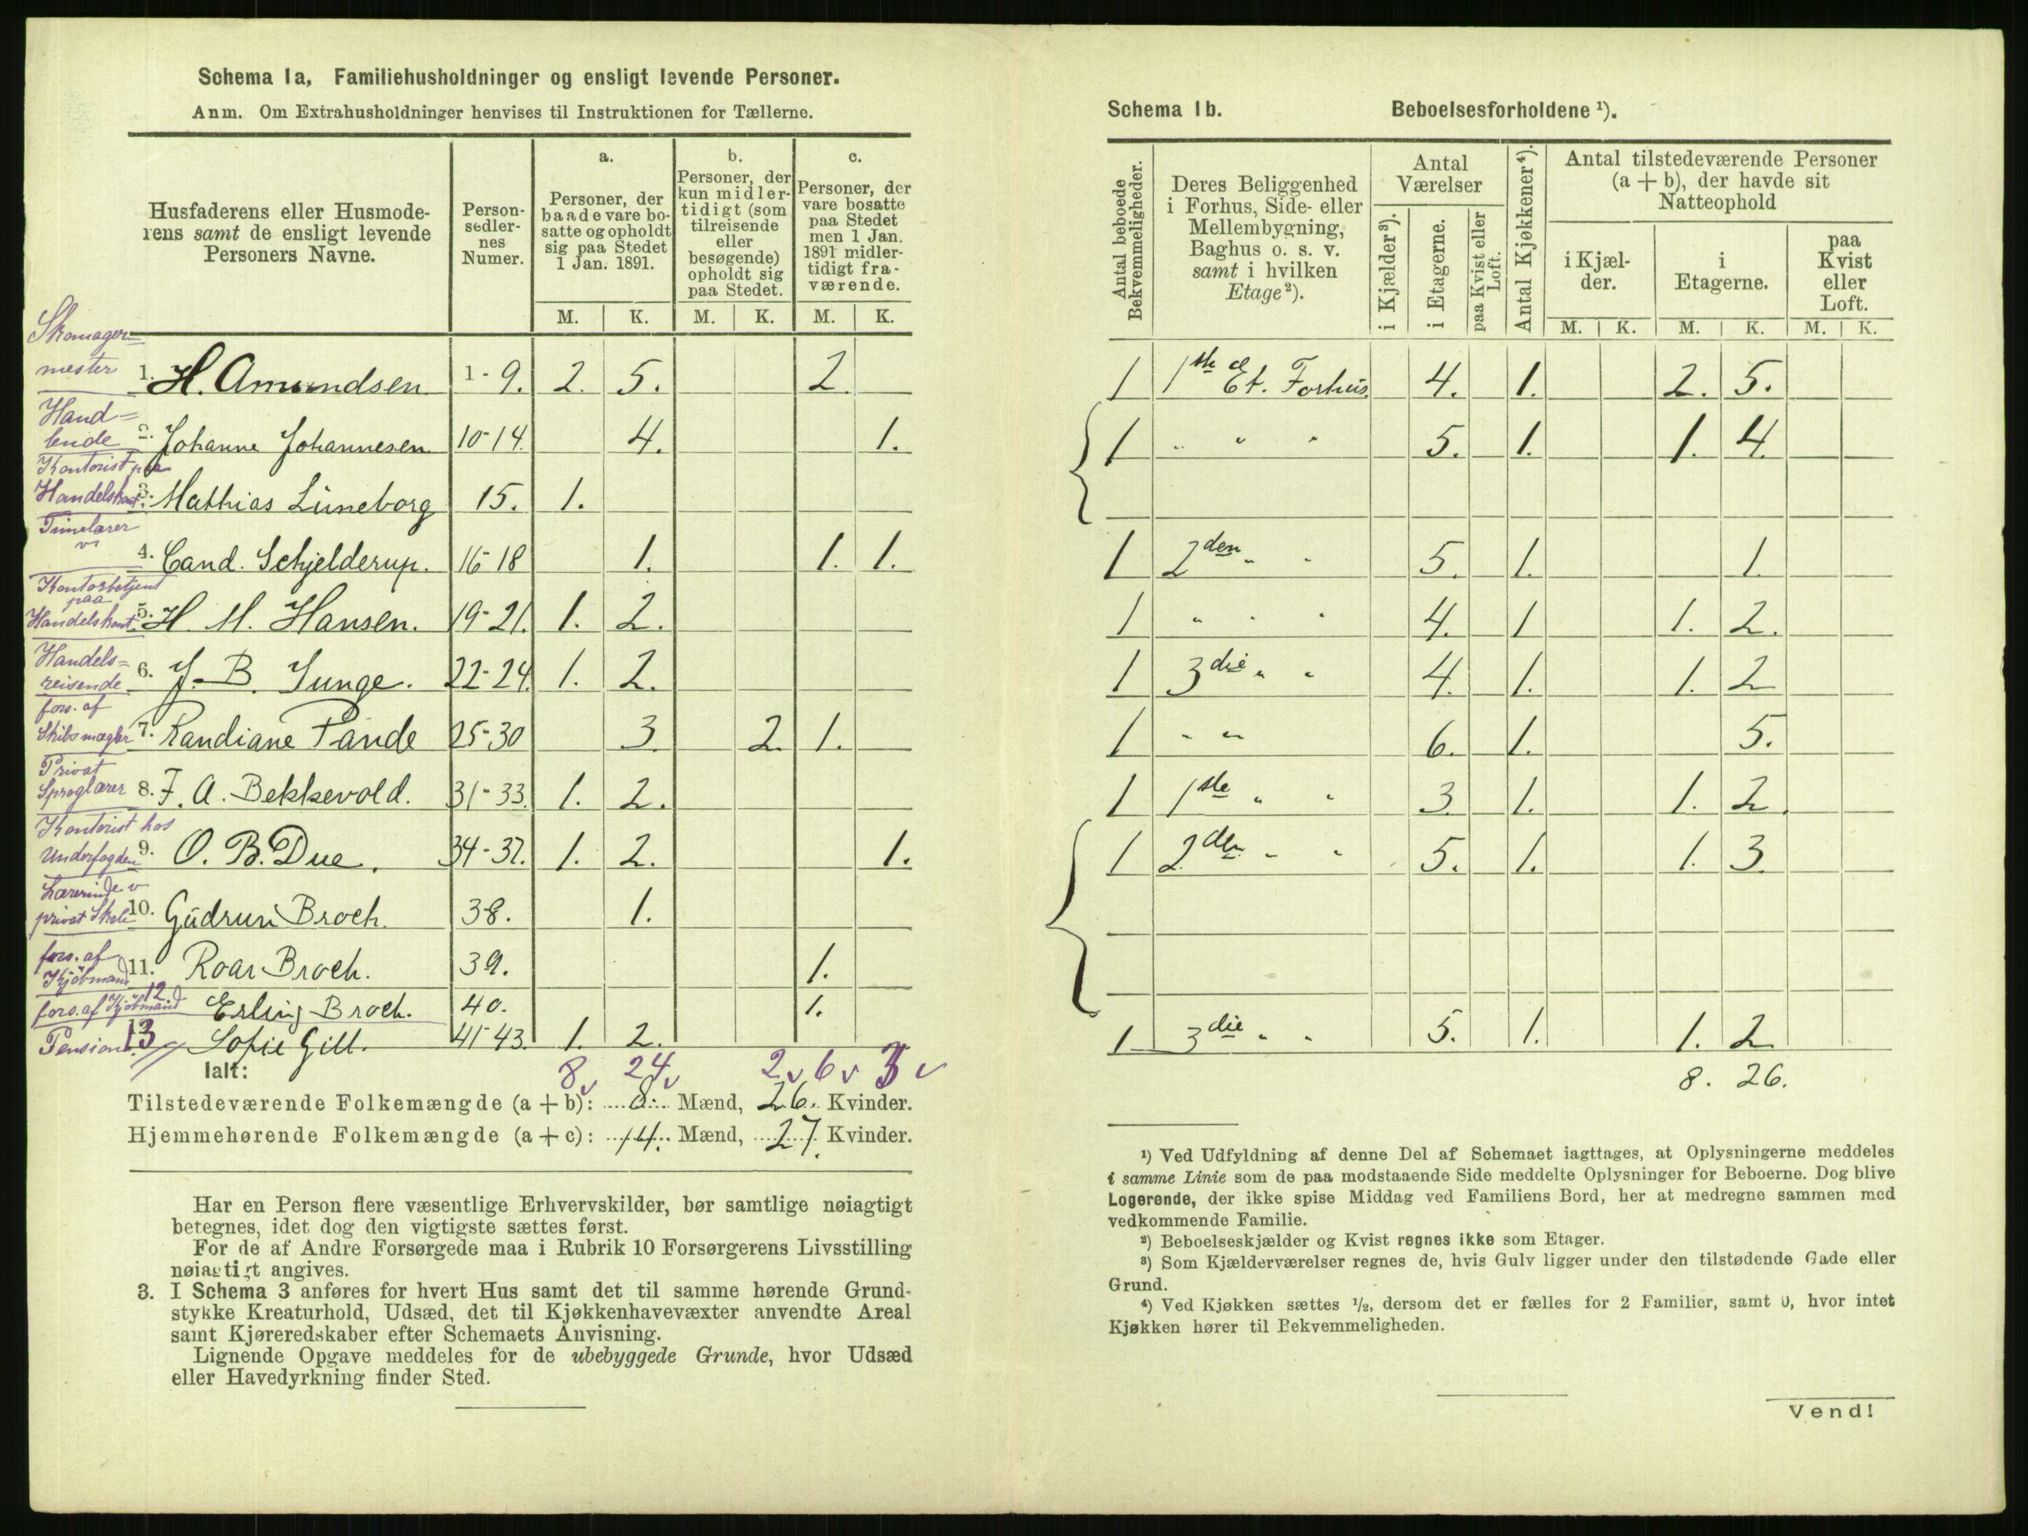 Schema 1a. Familiehusholdninger og ensligt levende Personer.
Anm. Om Extrahusholdninger henvises til Instruktionen for Tællerne.
Husfaderens eller Husmoderens samt de ensligt levende Personers Navne.
Personsedlernes Numer.
a.
Personer, der baade vare bosatte og opholdt sig paa Stedet 1 Jan. 1891.
b.
Personer, der kun midlertidigt (som tilreisende eller besøgende) opholdt sig paa Stedet.
c.
Personer, der vare bosatte paa Stedet men 1 Jan. 1891 midlertidigt fraværende.
M. K. M. K. M. K.
Skomagermester 1. H. Amundsen 1-9. 2. 5. 2.
Handlende 2. Johanne Johannesen 10-14. 4. 1.
Kontorist paa Handelskont. 3. Mathias Lüneborg 15. 1.
Timelærer 4. Cand. Schjelderup. 16-18 1. 1. 1.
Kontorbetjent paa Handelskont 5. H. M. Hansen. 19-21. 1. 2.
Handelsreisende 6. J. B. Junge. 22-24. 1. 2.
fors. af Skibsmægler 7. Randiane Pande 25-30 3. 2. 1.
Privat Sproglærer 8. F. A. Bekkevold. 31-33. 1. 2.
Kontorist hos Underfogden 9. O. B. Due. 34-37. 1. 2. 1.
Lærerinde v privat Skole 10. Gudrun Broch. 38. 1.
fors. af Kjöbmand 11. Roar Broch. 39. 1.
fors. af Kjöbmand 12. Erling Broch. 40. 1.
Pension. 13 Sofie Gill. 41-43. 1. 2.
Ialt: 8 v 24 v 2 v 6 v 3 v
Tilstedeværende Folkemængde (a + b): 8. Mænd, 26. Kvinder.
Hjemmehørende Folkemængde (a + c): 14. Mænd, 27. Kvinder.
Har en Person flere væsentlige Erhvervskilder, bør samtlige nøiagtigt
betegnes, idet dog den vigtigste sættes først.
For de af Andre Forsørgede maa i Rubrik 10 Forsørgerens Livsstilling
nøiagtigt angives.
3. I Schema 3 anføres for hvert Hus samt det til samme hørende Grund-
stykke Kreaturhold, Udsæd, det til Kjøkkenhavevæxter anvendte Areal
samt Kjøreredskaber efter Schemaets Anvisning.
Lignende Opgave meddeles for de ubebyggede Grunde, hvor Udsæd
eller Havedyrkning finder Sted.
Schema 1b. Beboelsesforholdene ¹).
Antal beboede Bekvemmeligheder.
Deres Beliggenhed i Forhus, Side- eller Mellembygning, Baghus o. s. v. samt i hvilken Etage²).
Antal Værelser
i Kjælder³).
i Etagerne.
paa Kvist eller Loft.
Antal Kjøkkener⁴).
Antal tilstedeværende Personer (a + b), der havde sit Natteophold
i Kjælder.
i Etagerne.
paa Kvist eller Loft.
M. K. M. K. M. K.
1 1ste Et. Forhus. 4. 1. 2. 5.
1 " " " 5. 1. 1. 4.
1 2den " " 5. 1. 1.
1 " " " 4. 1 1. 2.
1 3die " " 4. 1. 1. 2
1 " " 6. 1. 5.
1 1ste " " 3. 1. 1. 2.
1 2den " " 5. 1. 1. 3.
1 3die " " 5. 1. 1. 2
8. 26.
¹) Ved Udfyldning af denne Del af Schemaet iagttages, at Oplysningerne meddeles
i samme Linie som de paa modstaaende Side meddelte Oplysninger for Beboerne. Dog blive
Logerende, der ikke spise Middag ved Familiens Bord, her at medregne sammen med
vedkommende Familie.
²) Beboelseskjælder og Kvist regnes ikke som Etager.
³) Som Kjælderværelser regnes de, hvis Gulv ligger under den tilstødende Gade eller
Grund.
⁴) Ved Kjøkken sættes ½, dersom det er fælles for 2 Familier, samt 0, hvor intet
Kjøkken hører til Bekvemmeligheden.
Vend!